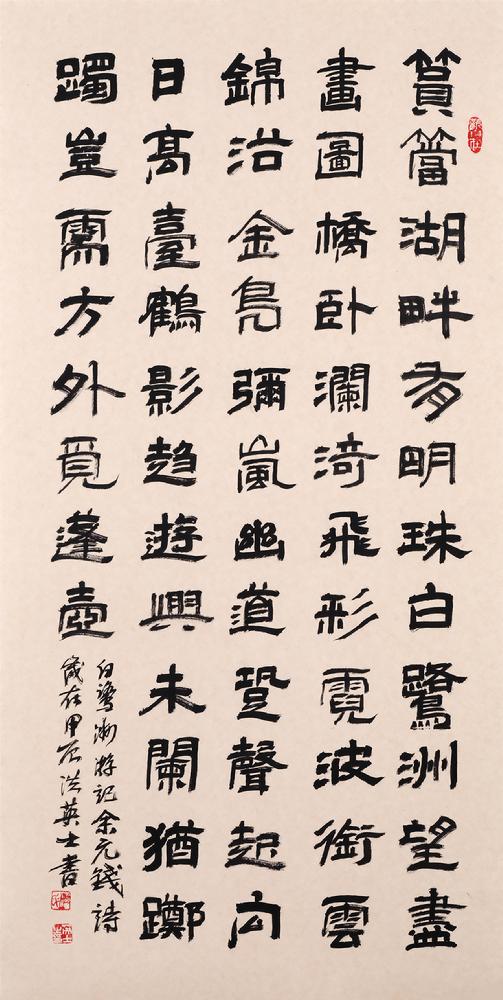 篔簹湖畔有明珠白鷺洲望盡
畫圖橋卧瀾漪飛彩霓波銜雲
錦沿金鳧彌嵐幽道跫聲起向
日高臺鶴影趨遊興未闌猶躑
躅豈需方外覓蓬壺
白鷺洲游記余元錢詩
歲在甲辰洪英士書